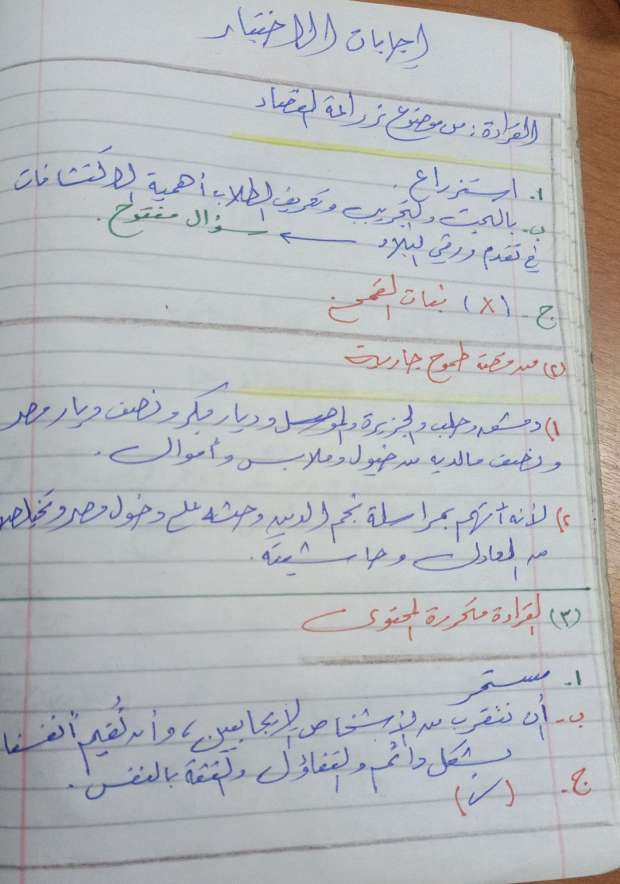 إجابات الاختبار
القراءة: من موضوع زراعة الفضاء
أ. استزراع.
ب. بالبحث والتجريب وتعريف الطلاب أهمية الاكتشافات
في تقدم ورقي البلاد ← سؤال مفتوح.
ج - (X) نبات القمح
(٢) من قصة طموح جارية
١) دمشق وحلب والجزيرة والموصل وديار وبكر ونصف ديار مصر
ونصف مالديه من خيول وملابس وأموال.
٢) لأنه اتهم بمراسلة نجم الدين وحثه على دخول مصر وتخليصها
من العادل وحاشيته.
(٣) القراءة متحررة المحتوى
أ. مستمر
ب- أن نتقرب من الأشخاص الإيجابيين، وأن نُقيم أنفسنا
بشكل دائم والتفاؤل والثقة بالنفس.
ج. (✓)